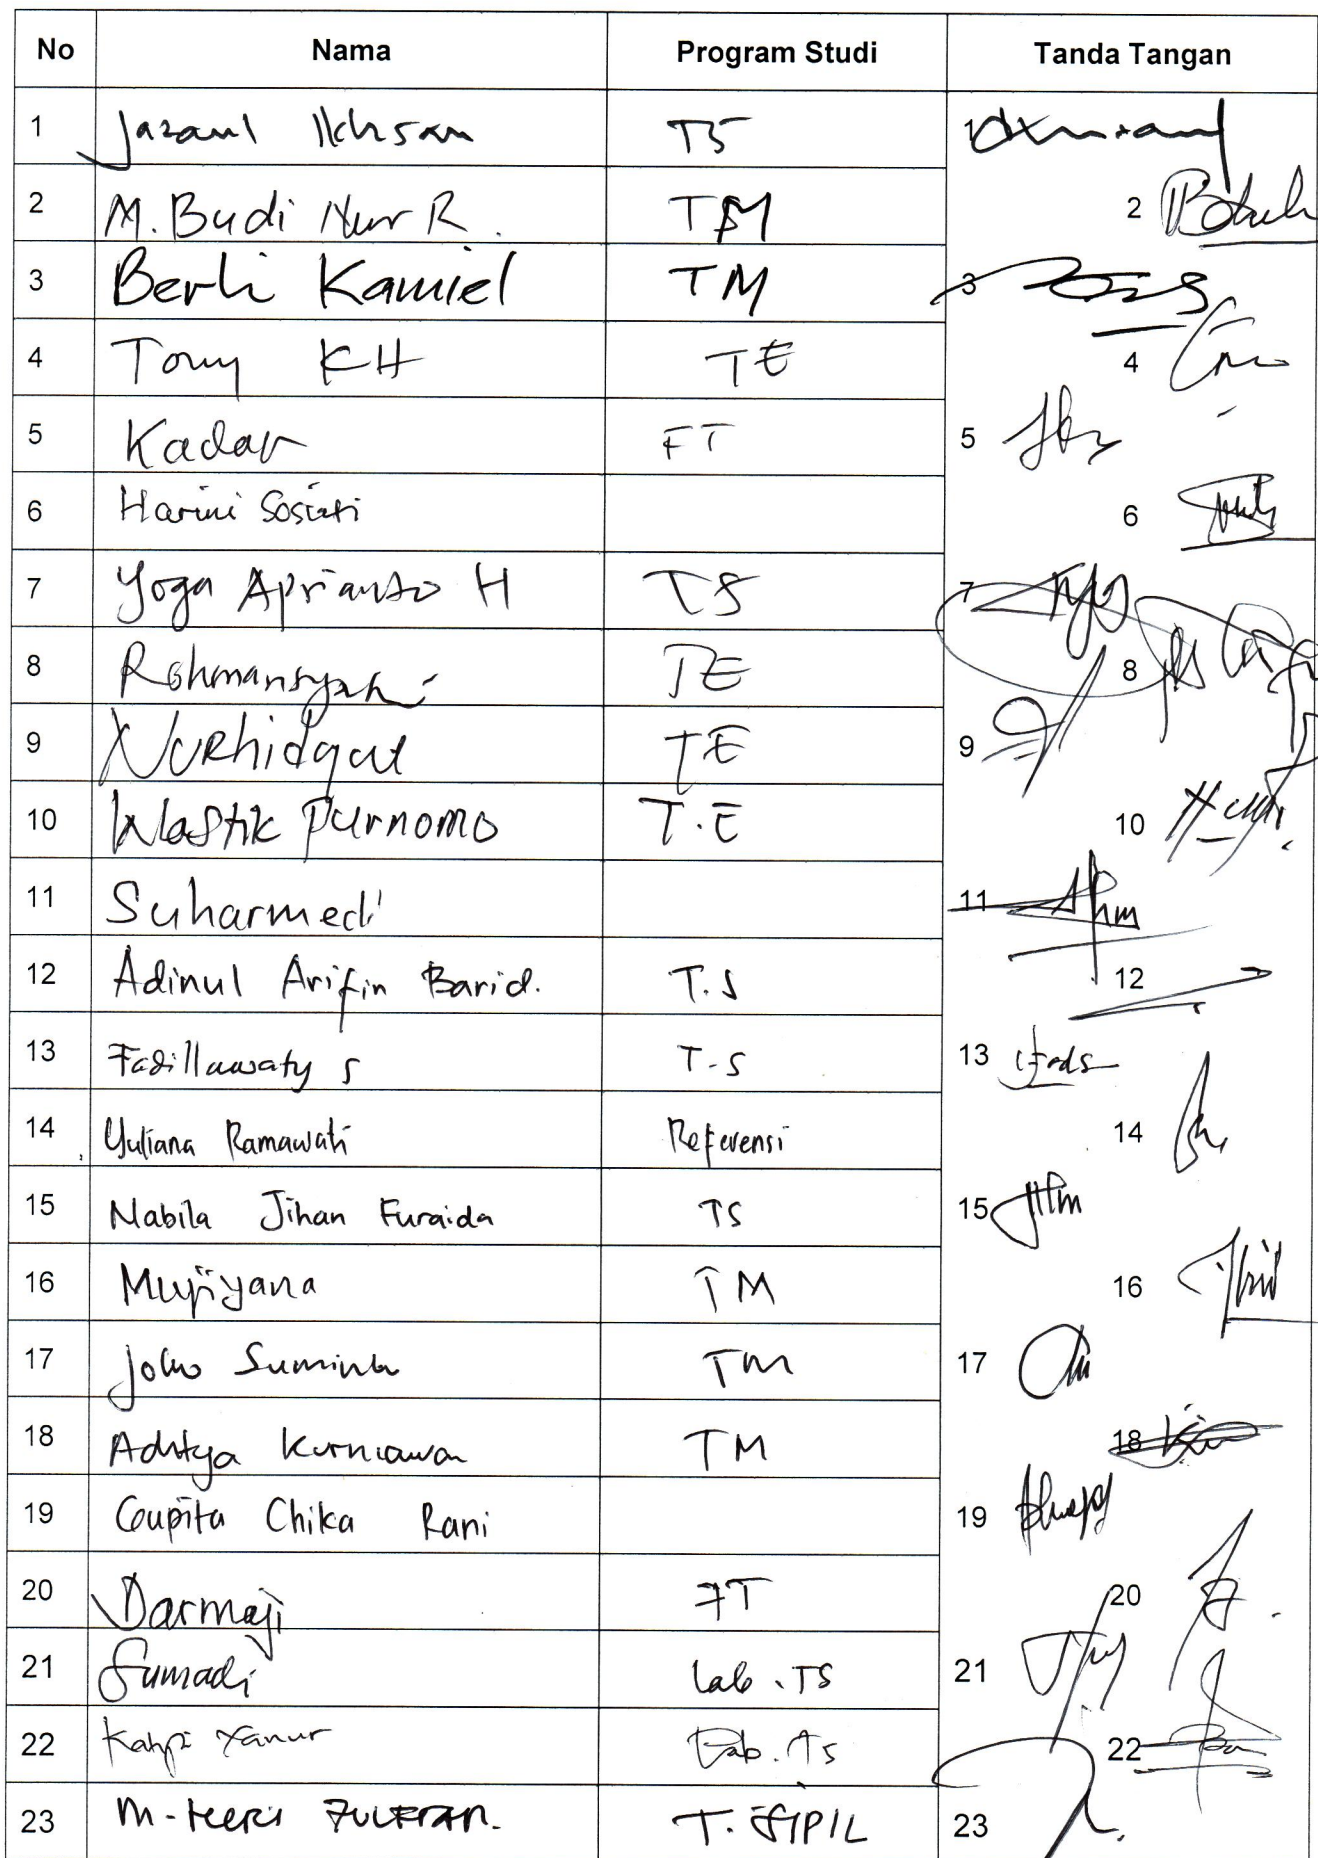 No Nama Program Studi Tanda Tangan
1 Jazaul Ikhsan TS 1
2 M. Budi Nur R. TM 2
3 Berli Kamiel TM 3
4 Tony KH TE 4
5 Kadar FT 5
6 Harini Sosiati 6
7 Yoga Aprianto H TS 7
8 Rohmansyah TE 8
9 Nurhidayat TE 9
10 Wastik Purnomo T.E 10
11 Suharmedi 11
12 Adinul Arifin Barid. T.S 12
13 Fadillawaty S T-S 13
14 Yuliana Ramawati Referensi 14
15 Nabila Jihan Furaida TS 15
16 Mujiyana TM 16
17 Joko Suminto TM 17
18 Aditya Kurniawan TM 18
19 Gupita Chika Rani 19
20 Darmaji FT 20
21 Sumadi Lab. TS 21
22 Yanur Lab. TS 22
23 M. Heri T. SIPIL 23